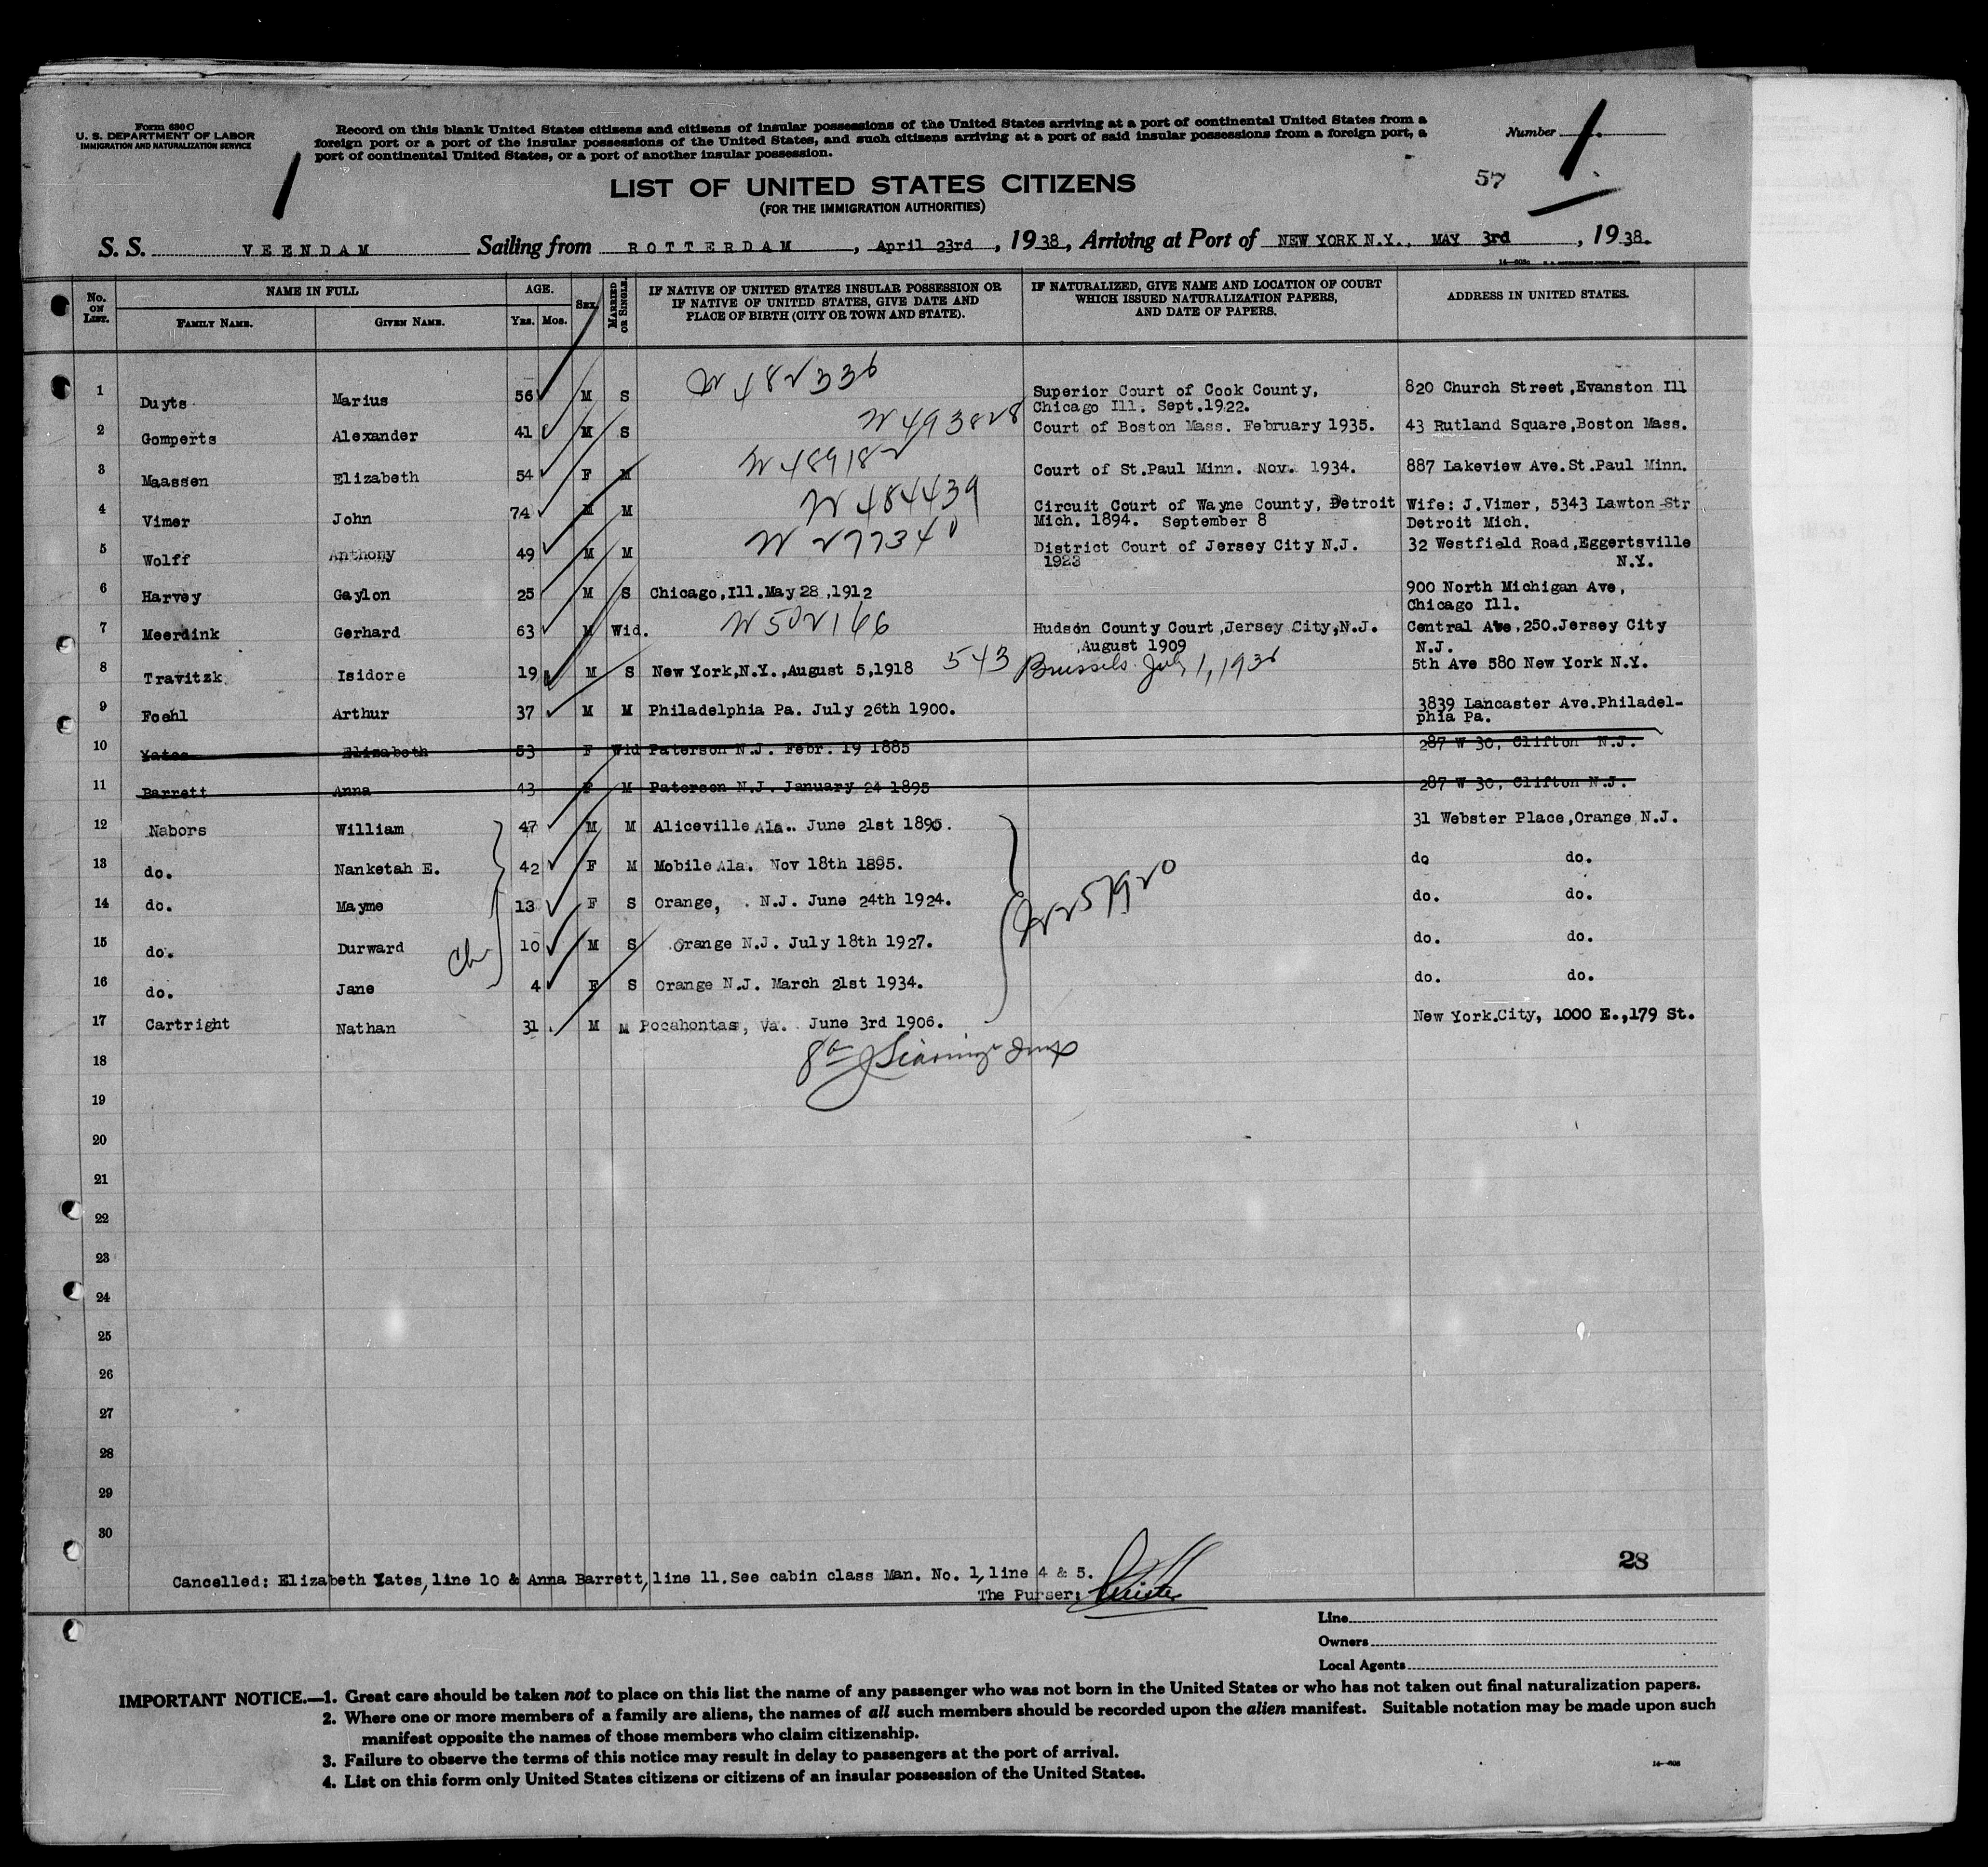 Form 630 C
U. S. DEPARTMENT OF LABOR
IMMIGRATION AND NATURALIZATION SERVICE
Record on this blank United States citizens and citizens of insular possessions of the United States arriving at a port of continental United States from a
foreign port or a port of the insular possessions of the United States, and such citizens arriving at a port of said insular possessions from a foreign port, a
port of continental United States, or a port of another insular possession.
Number 1
1
57
LIST OF UNITED STATES CITIZENS
(FOR THE IMMIGRATION AUTHORITIES)
S. S. VEENDAM Sailing from ROTTERDAM, April 23rd, 1938, Arriving at Port of NEW YORK N.Y., MAY 3rd, 1938.
No. ON LIST. NAME IN FULL FAMILY NAME. GIVEN NAME. AGE. YRS. MOS. SEX. MARRIED OR SINGLE. IF NATIVE OF UNITED STATES INSULAR POSSESSION OR IF NATIVE OF UNITED STATES, GIVE DATE AND PLACE OF BIRTH (CITY OR TOWN AND STATE). IF NATURALIZED, GIVE NAME AND LOCATION OF COURT WHICH ISSUED NATURALIZATION PAPERS, AND DATE OF PAPERS. ADDRESS IN UNITED STATES.
1 Duyts Marius 56 M S W 482336 Superior Court of Cook County, Chicago Ill. Sept.1922. 820 Church Street,Evanston Ill
2 Gomperts Alexander 41 M S W 493828 Court of Boston Mass. February 1935. 43 Rutland Square,Boston Mass.
3 Maassen Elizabeth 54 F M W 489182 Court of St.Paul Minn. Nov. 1934. 887 Lakeview Ave.St.Paul Minn.
4 Vimer John 74 M M W 484439 Circuit Court of Wayne County, Detroit Mich. 1894. September 8 Wife: J.Vimer, 5343 Lawton Str Detroit Mich.
5 Wolff Anthony 49 M M W 277340 District Court of Jersey City N.J. 1923 32 Westfield Road,Eggertsville N.Y.
6 Harvey Gaylon 25 M S Chicago,Ill.May 28,1912 900 North Michigan Ave, Chicago Ill.
7 Meerdink Gerhard 63 M Wid. W 502166 Hudson County Court,Jersey City,N.J. ,August 1909 Central Ave,250.Jersey City N.J.
8 Travitzk Isidore 19 M S New York,N.Y.,August 5,1918 543 Brussels July 1, 1936 5th Ave 580 New York N.Y.
9 Foehl Arthur 37 M M Philadelphia Pa. July 26th 1900. 3839 Lancaster Ave.Philadel- phia Pa.
10 Yates Elizabeth 53 F Wid Paterson N.J. Febr. 19 1885 287 W 30, Clifton N.J.
11 Barrett Anna 43 F M Paterson N.J. January 24 1895 287 W 30, Clifton N.J.
12 Nabors William 47 M M Aliceville Ala. June 21st 1890. 31 Webster Place,Orange N.J.
13 do. Nanketah E. 42 F M Mobile Ala. Nov 18th 1895. do do.
14 do. Mayme 13 F S Orange, . N.J. June 24th 1924. do. do.
15 do. Durward 10 M S Orange N.J. July 18th 1927. do. do.
16 do. Jane 4 F S Orange N.J. March 21st 1934. do. do.
17 Cartright Nathan 31 M M Pocahontas, Va. June 3rd 1906. New York.City, 1000 E.,179 St.
18
19
20
21
22
23
24
25
26
27
28
29
30
28
Cancelled: Elizabeth Yates, line 10 & Anna Barrett, line 11. See cabin class Man. No. 1, line 4 & 5.
The Purser:
Line
Owners
Local Agents
IMPORTANT NOTICE.—1. Great care should be taken not to place on this list the name of any passenger who was not born in the United States or who has not taken out final naturalization papers.
2. Where one or more members of a family are aliens, the names of all such members should be recorded upon the alien manifest. Suitable notation may be made upon such
manifest opposite the names of those members who claim citizenship.
3. Failure to observe the terms of this notice may result in delay to passengers at the port of arrival.
4. List on this form only United States citizens or citizens of an insular possession of the United States.